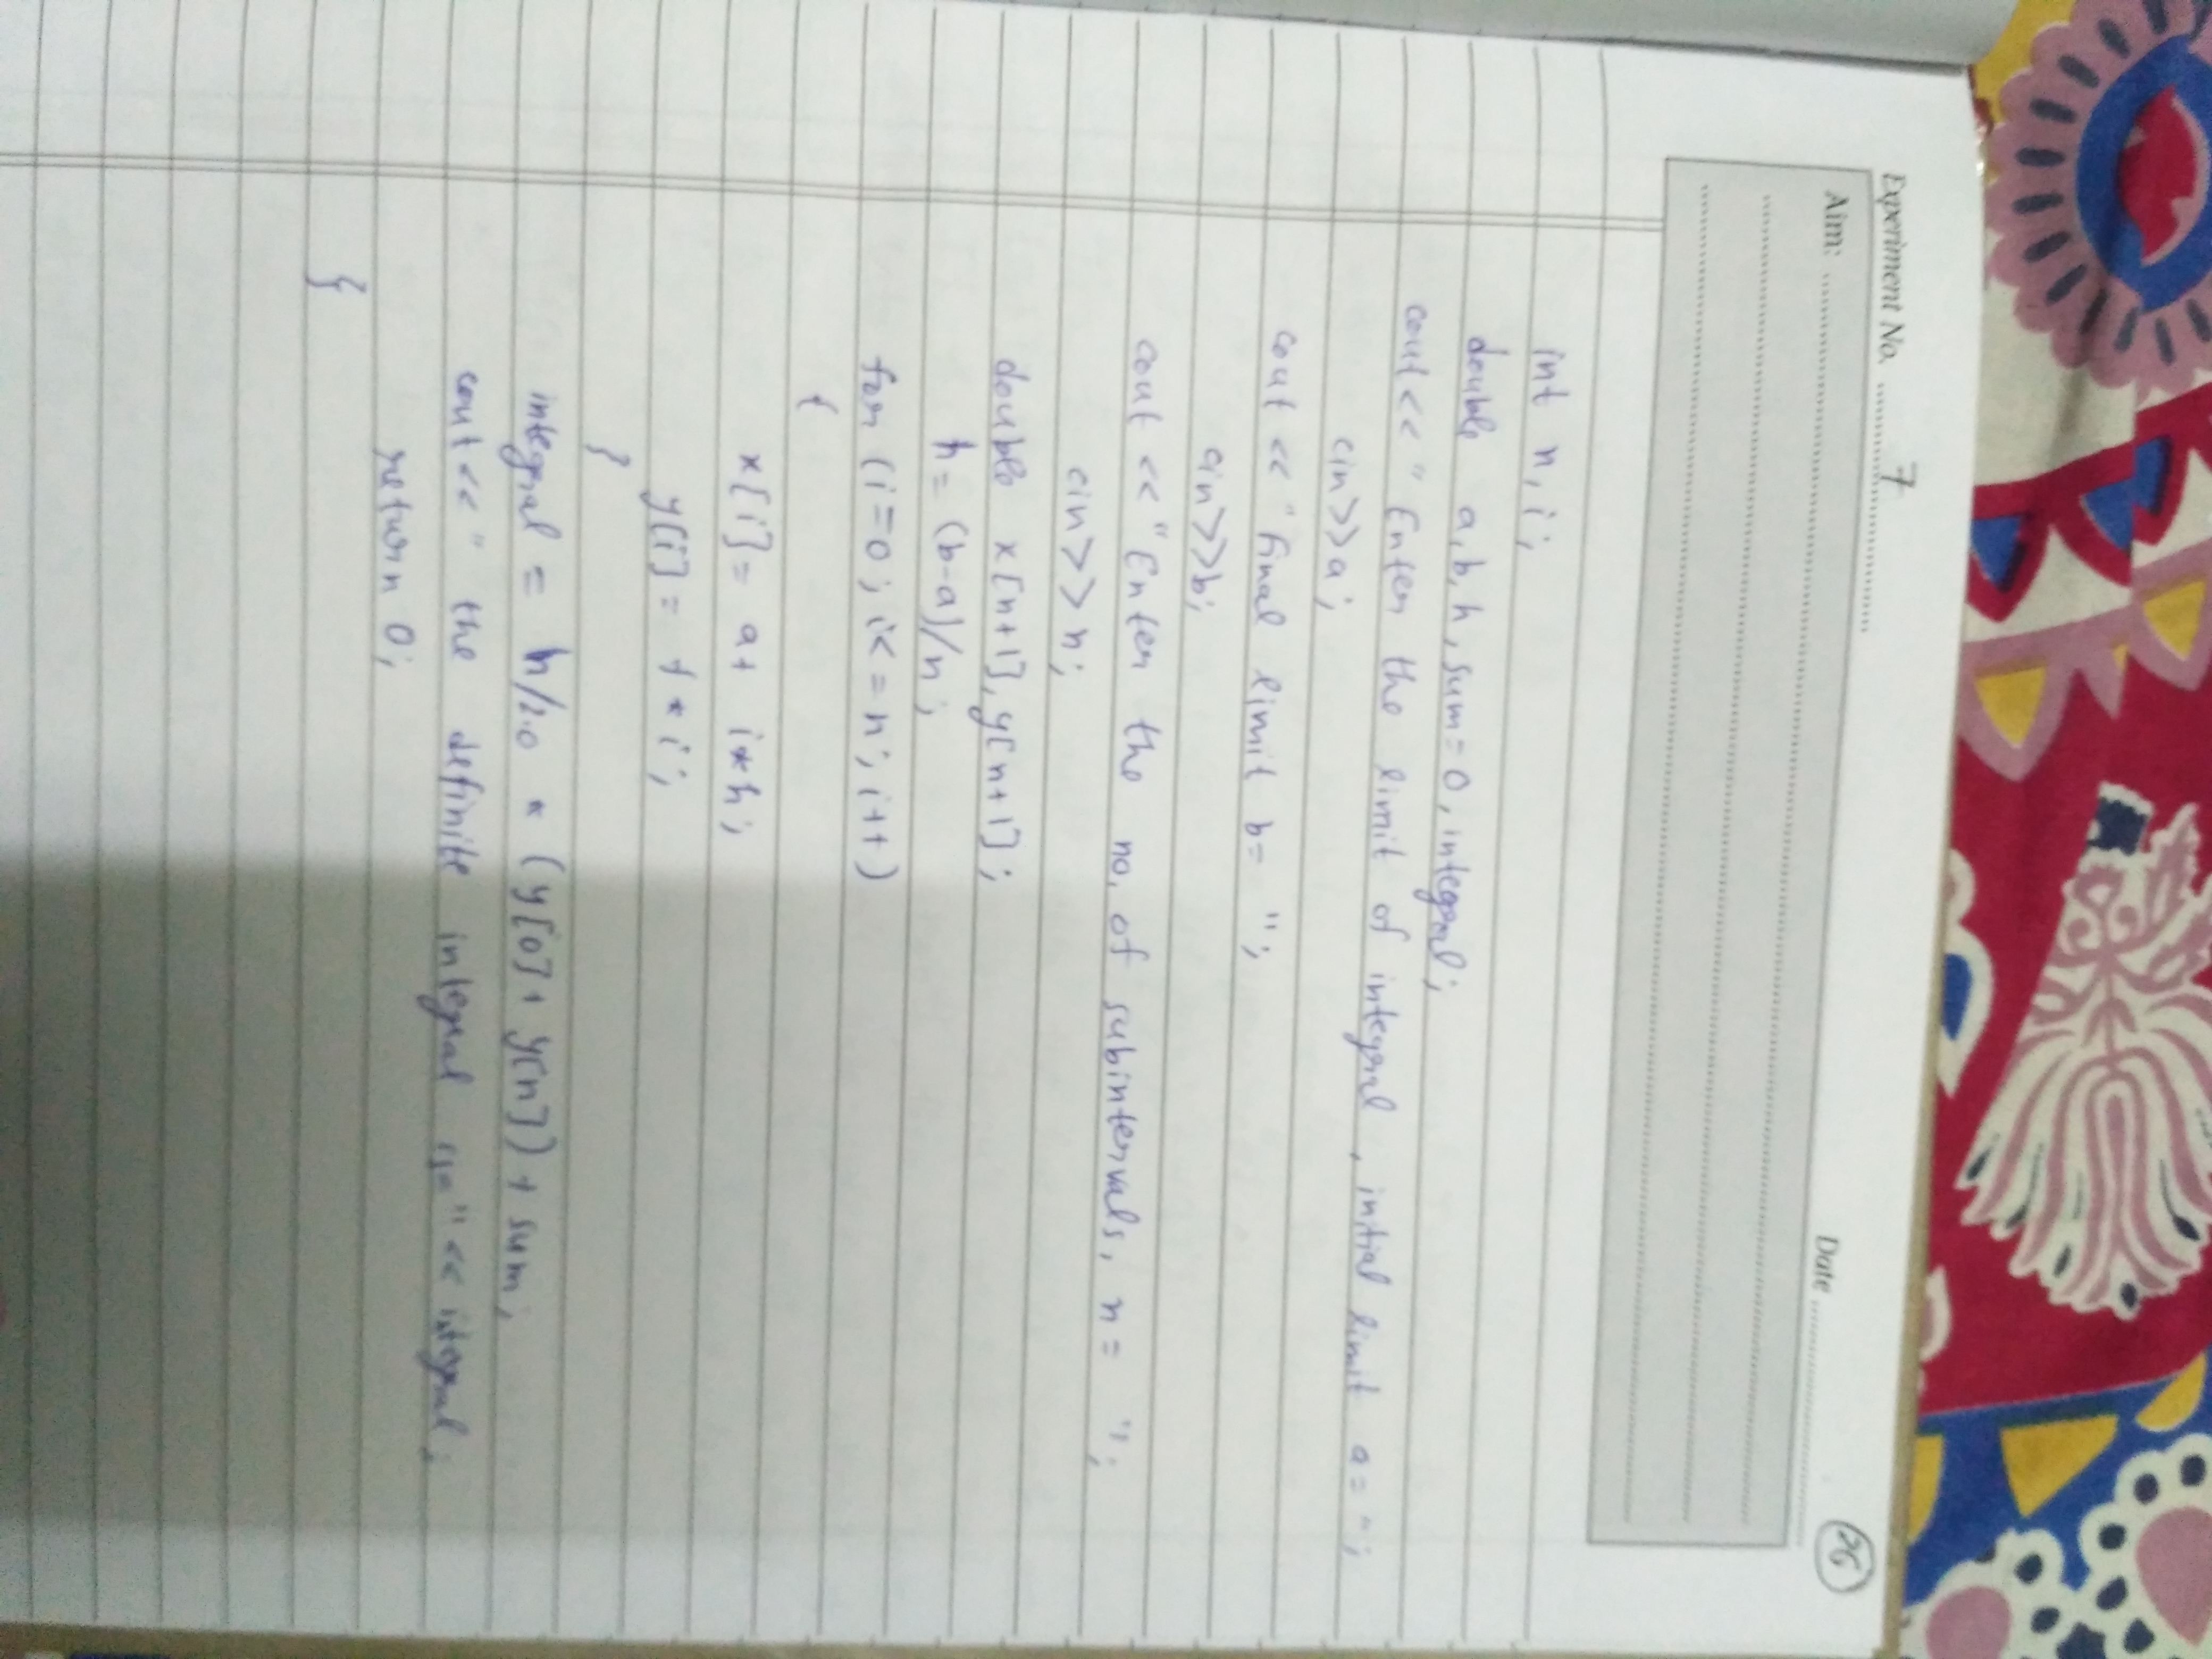 Experiment No. 7
26
Date
Aim:
int n, i;
double a, b, h, sum=0, integral;
cout<< " Enter the limit of integral, initial limit a= ";
cin>>a;
cout << " Final limit b= ";
cin>>b;
cout << "Enter the no. of subintervals, n= ";
cin>>n;
double x[n+1], y[n+1];
h= (b-a)/n;
for (i=0; i<=n; i++)
{
x[i]= a+ i*h;
y[i]= f * i;
}
integral = h/2.0 * (y[0]+ y[n])+ sum;
cout<< " the definite integral is=" << integral;
return 0;
}